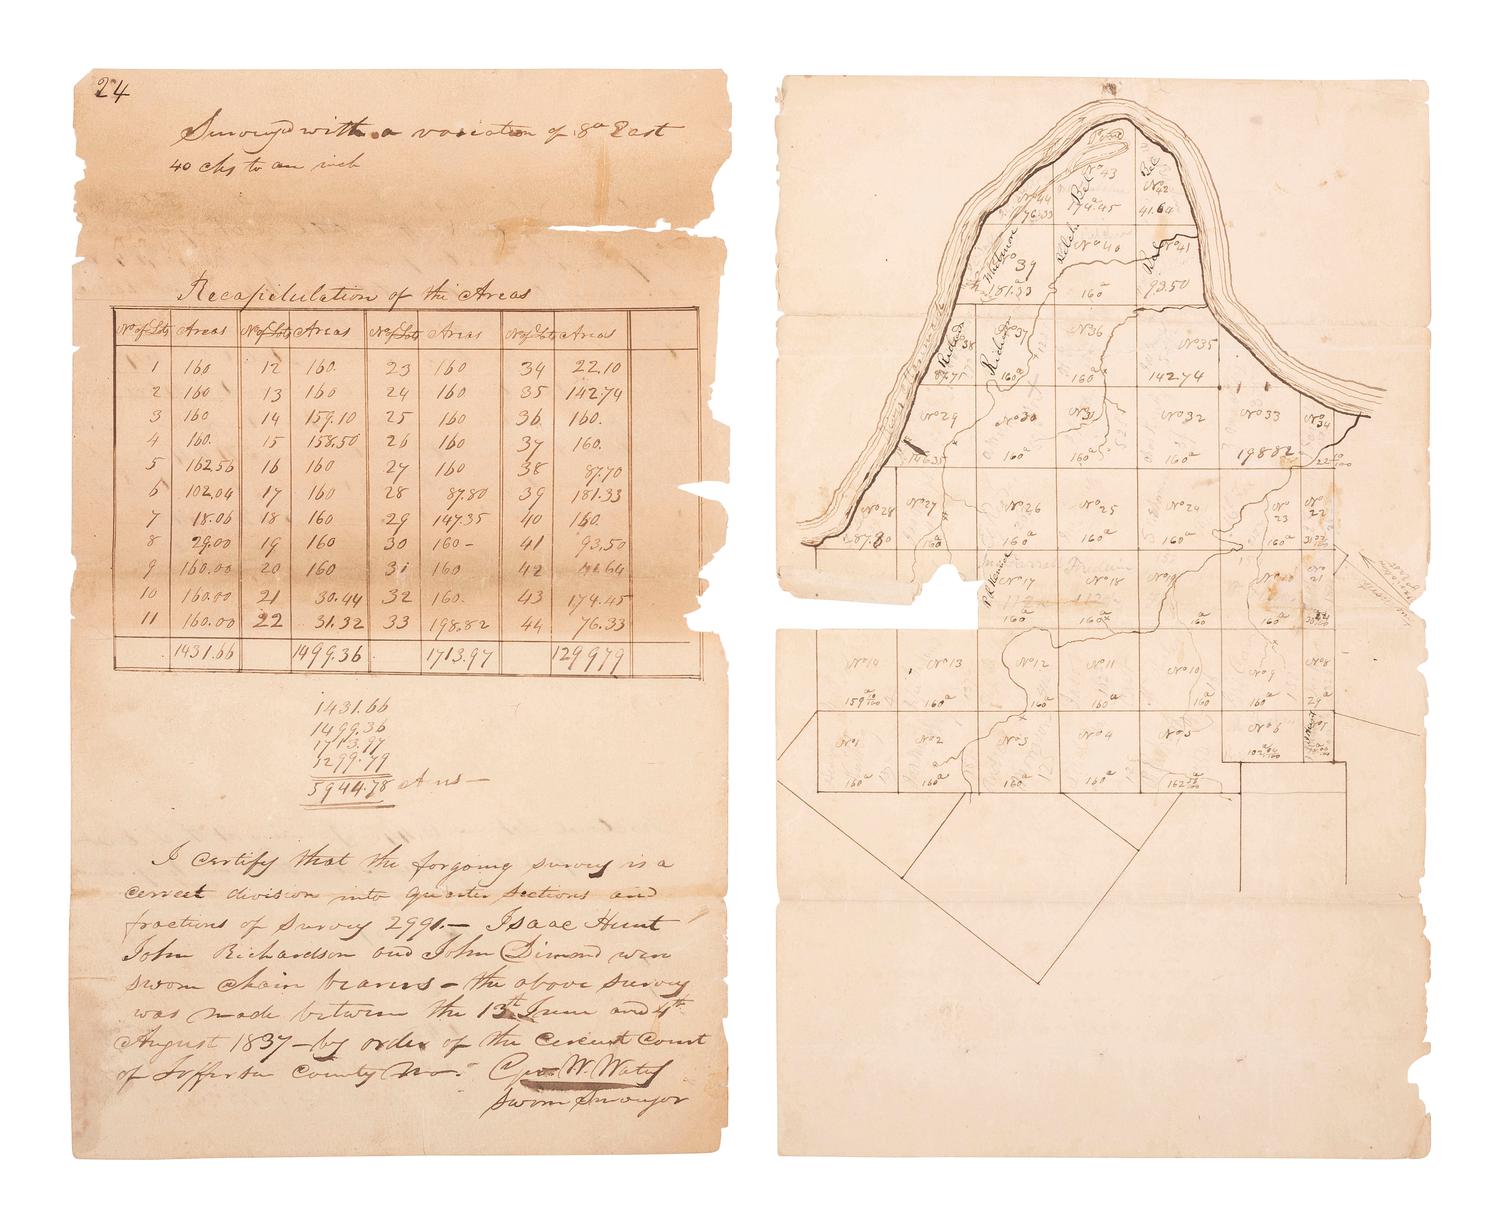 24
Surveyd with a variation of 8° East
40 chs to an inch
Recapitulation of the Areas
No of Lots Areas No of Lots Areas No of Lots Areas No of Lots Areas
1 160 12 160 23 160 34 22.10
2 160 13 160 24 160 35 142.74
3 160 14 159.10 25 160 36 160.
4 160. 15 158.50 26 160 37 160.
5 162.56 16 160 27 160 38 87.70
6 102.04 17 160 28 87.80 39 181.33
7 18.06 18 160 29 147.35 40 160.
8 29.00 19 160 30 160- 41 93.50
9 160.00 20 160 31 160 42 41.64
10 160.00 21 30.44 32 160. 43 174.45
11 160.00 22 31.32 33 198.82 44 76.33
1431.66 1499.36 1713.97 129979
1431.66
1499.36
1713.97
1299.79
5944.78 Ans—
I certify that the forgoing survey is a
correct division into quarter sections and
fractions of Survey 2991.— Isaac Hunt
John Richardson and John Dimond were
sworn chain bearers — the above survey
was made between the 13th June and 4th
August 1837 — by order of the Circuit Court
of Jefferson County Mo. Geo. W. Waters
Sworn Surveyor
No 43
174.45
No 42
41.64
No 44
76.33
Whitmore
39
181.33
No 40
160
No 41
93.50
38
87.75
No 37
160a
No 36
160a
No 35
142.74
No 29
No 30
160a
No 31
160a
No 32
160a
No 33
198.82
No 34
22 10/100
No 28
87.80
No 27
160a
No 26
160a
No 25
160a
No 24
160a
No 23
160a
No 22
No 17
160a
No 18
160a
160
160a
No 21
No 14
159 10/100
No 13
160a
No 12
160a
No 11
160a
No 10
160a
No 9
160a
No 8
29a
No 1
160a
No 2
160a
No 3
160a
No 4
160a
No 5
162 56/100
No 6
102 04/100